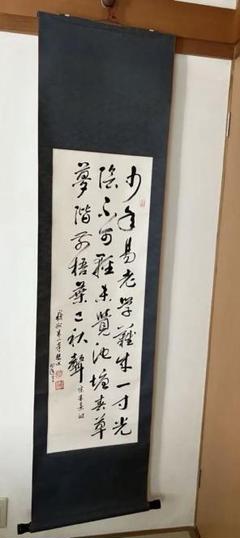 少年易老學難成一寸光
陰不可輕未覺池塘春草
夢階前梧葉已秋聲